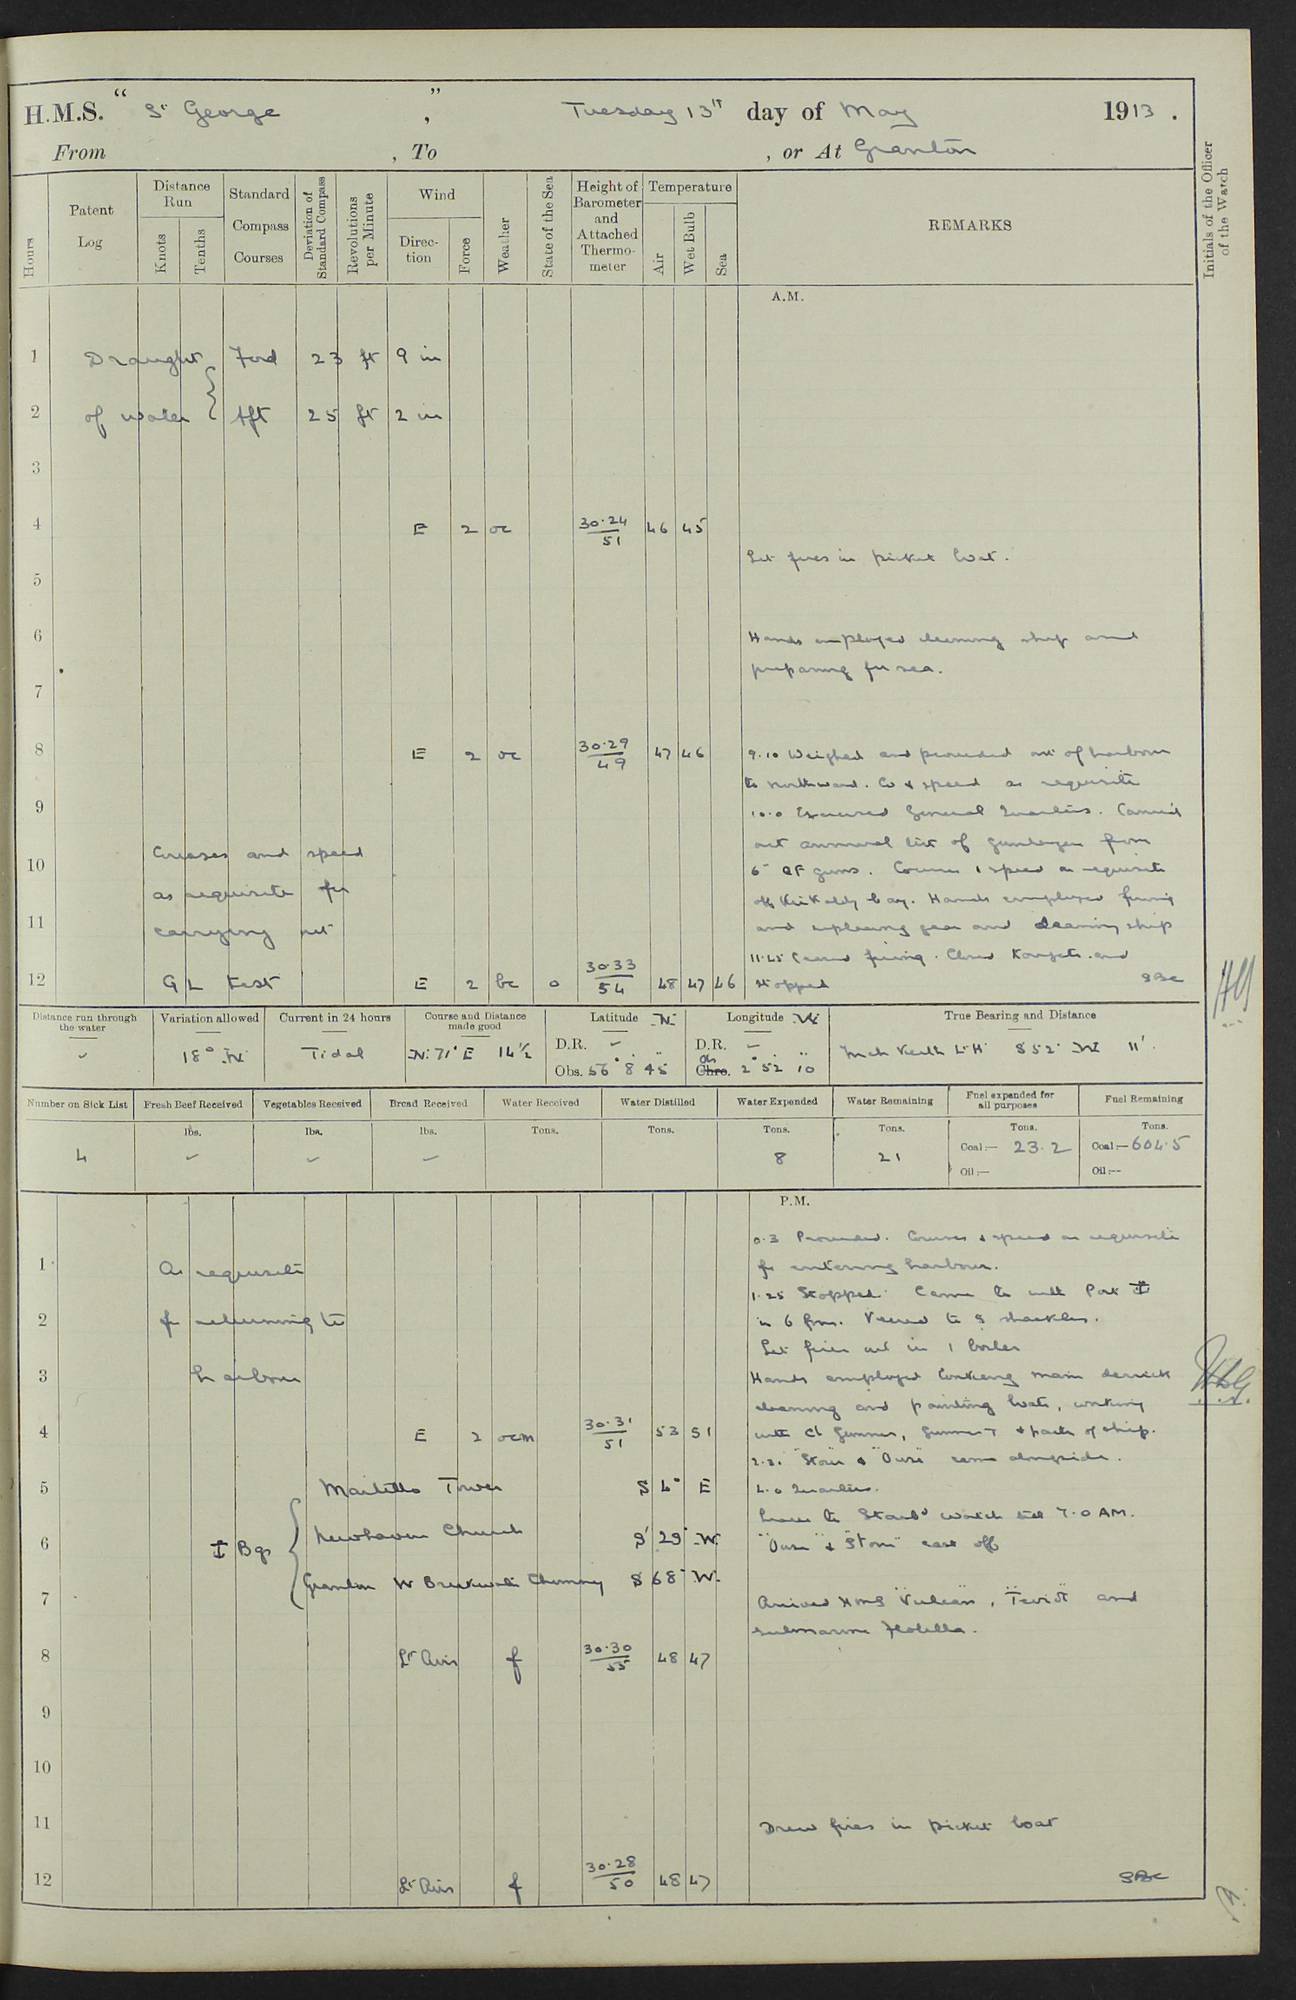 H.M.S. "St George", Tuesday 13th day of May 1913.
From , To , or At Granton
Hours
Patent Log
Distance Run
Knots
Tenths
Standard Compass Courses
Deviation of Standard Compass
Revolutions per Minute
Wind
Direction
Force
Weather
State of the Sea
Height of Barometer and Attached Thermometer
Temperature
Air
Wet Bulb
Sea
REMARKS
Initials of the Officer of the Watch
A.M.
1 Draught Ford 23 ft 9 in
2 of water Aft 25 ft 2 in
3
4 E 2 oc 30.24 51 46 45
Lit fires in picket boat.
5
6 Hands employed cleaning ship and
preparing for sea.
7
8 E 2 oc 30.29 49 47 46 9.10 Weighed and proceeded out of harbour
to northward. Co & speed as requisite
9 10.0 Exercised General Quarters. Carried
out annual test of gunlayers from
10 Courses and speed 6" QF guns. Course & speed as requisite
as requisite for off Kirkcaldy bay. Hands employed firing
11 carrying out and replacing gear and cleaning ship
11.45 Ceased firing. Closed targets and
12 G L test E 2 bc 0 30.33 54 48 47 46 stopped SBC
Distance run through the water
Variation allowed 18° W
Current in 24 hours Tidal
Course and Distance made good N 71° E 14½
Latitude N D.R. – Obs. 56° 8' 45"
Longitude W D.R. – Obs Chro. 2° 52' 10"
True Bearing and Distance Inch Keith Lt Ho S 52° W 11'.
Number on Sick List 4
Fresh Beef Received lbs. –
Vegetables Received lbs. –
Bread Received lbs. –
Water Received Tons.
Water Distilled Tons.
Water Expended Tons. 8
Water Remaining Tons. 21
Fuel expended for all purposes Tons. Coal:— 23.2 Oil:—
Fuel Remaining Tons. Coal:— 604.5 Oil:—
P.M.
0.3 Proceeded. Courses & speed as requisite
1 As requisite for entering harbour.
1.25 Stopped. Came to with Port
2 for returning to in 6 fms. Veered to 5 shackles.
Let fires out in 1 boiler
3 harbour Hands employed working main derrick
cleaning and painting boats, working
4 E 2 ocm 30.31 51 53 51 with Ch Gunner, Gunner T & parts of ship.
"Stour" & "Ouse" came alongside.
5 Martello Tower S 4° E 4.0 Quarters.
Leave to Starbd watch till 7.0 AM.
6 Bgs Newhaven Church S 29° W "Ouse" & "Stour" cast off
Granton W Breakwater Chimney S 68° W
7 Arrived HMS "Vulcan", "Teviot" and
submarine flotilla.
8 Lt Airs f 30.30 55 48 47
9
10
11 Drew fires in picket boat
12 Lt Airs f 30.28 50 48 47 SBC